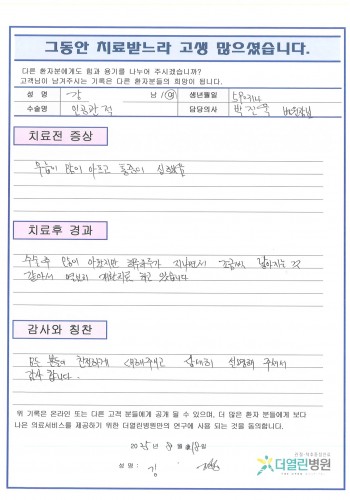 그동안 치료받느라 고생 많으셨습니다.
다른 환자분에게도 힘과 용기를 나누어 주시겠습니까?
고객님이 남겨주시는 기록은 다른 환자분들의 희망이 됩니다.
성 명 김 남 / 여 생년월일
수술명 인공관절 담당의사 박진욱 병원장님
치료전 증상
무릎이 많이 아프고 통증이 심했음
치료후 경과
수술후 많이 아팠지만 지나면서 조금씩 같아서 열심히 하고 있습니다
감사와 칭찬
모든 분들이 친절하게 대해주시고 상세히 설명해 주셔서
감사 합니다.
위 기록은 온라인 또는 다른 고객 분들에게 공개 될 수 있으며, 더 많은 환자 분들에게 보다
나은 의료서비스를 제공하기 위한 더열린병원만의 연구에 사용 되는 것을 동의합니다.
2025년 월 일
성 명 : 김
더열린병원